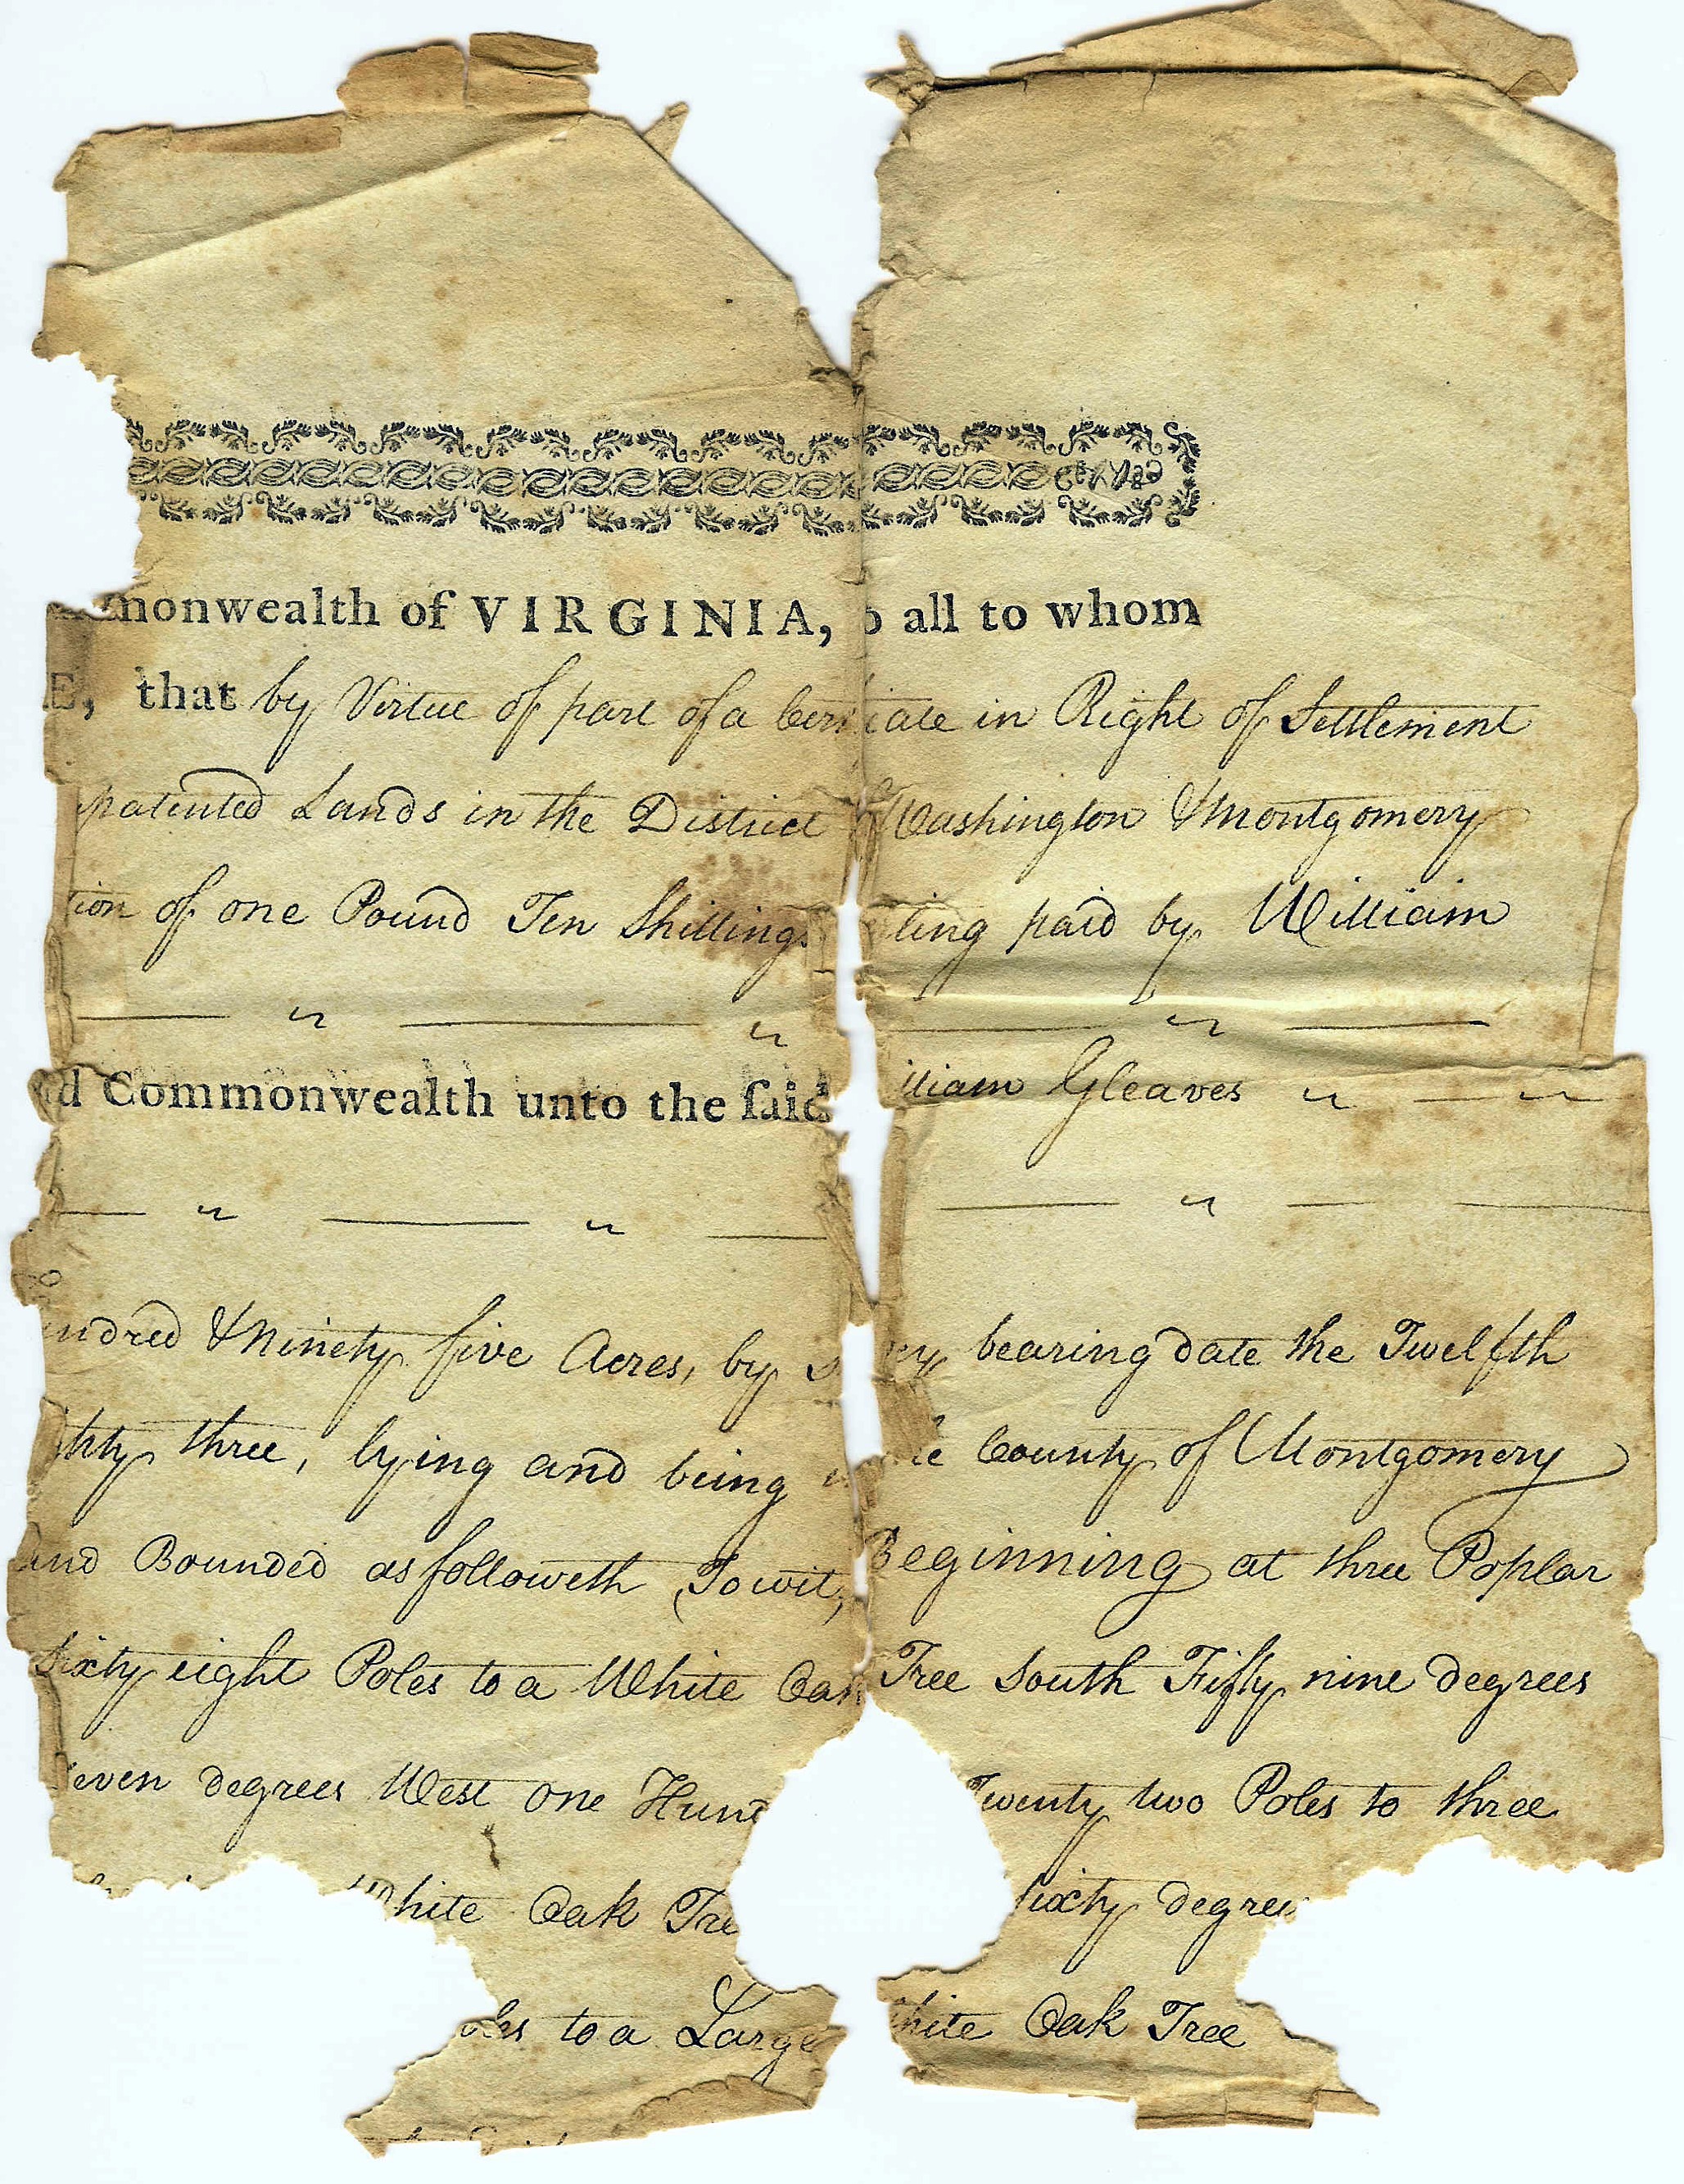 monwealth of VIRGINIA, o all to whom
E, that by Virtue of part of a Cer iate in Right of Settlement
patented Lands in the District of Washington & Montgomery
tion of one Pound Ten Shillings ling paid by William
d Commonwealth unto the ſaid illiam Gleaves
undred & Ninety five Acres, by s ey bearing date the Twelfth
ghty three, lying and being County of Montgomery
and Bounded as followeth To wit, Beginning at three Poplar
Sixty eight Poles to a White Oak Tree South Fifty nine degrees
Seven degrees West one Hund Twenty two Poles to three
White Oak Tre Sixty degree
oles to a Large White Oak Tree